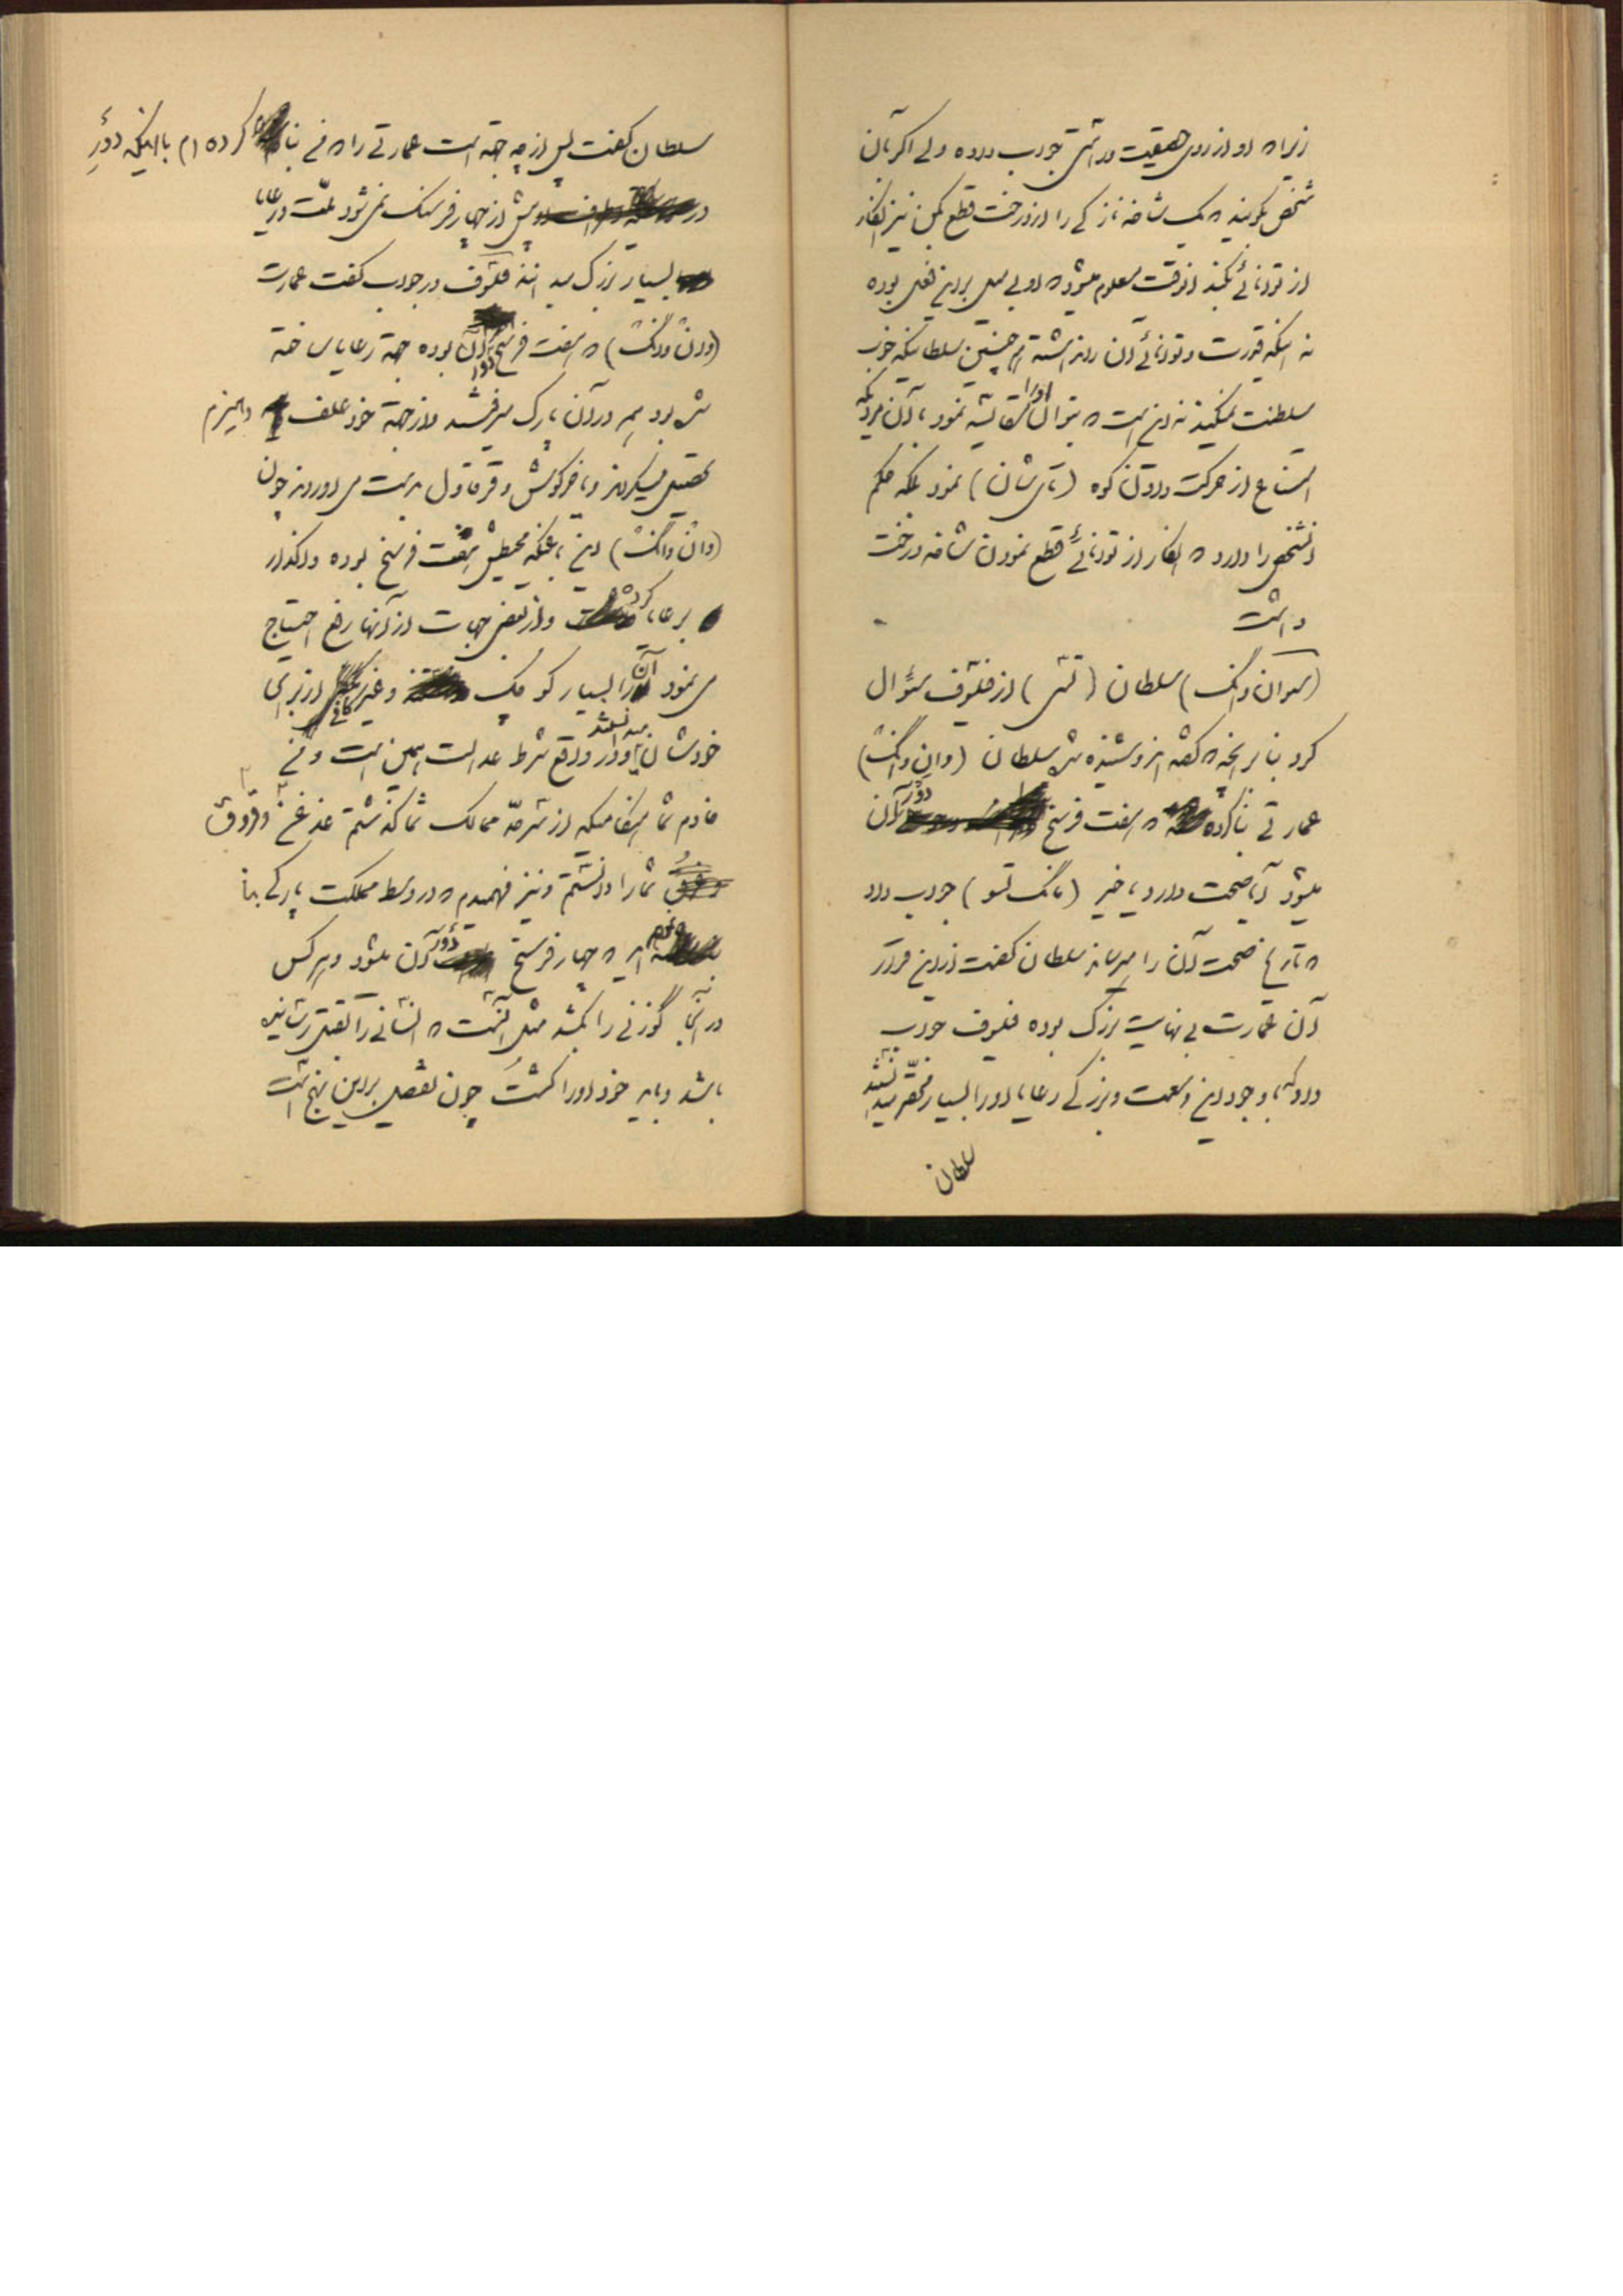 زیرا که او از روی حقیقت و راستی جواب داده ولی اگر بآن
شخص بگویند که یک شاخه نازکی را از درخت قطع کن نیز انکار
از توانائی بکند آنوقت معلوم میشود که او بی میل براین فعل بوده
نه اینکه قدرت و توانائی آن را نداشته همچنین سلطانیکه خوب
سلطنت نمیکند نه این است که بتوان او را مقایسه نمود با آن مردیکه
امتناع از حرکت دادن کوه (تای شان) نمود بلکه حکم
آنشخص را دارد که انکار از توانائی قطع نمودن شاخه درخت
داشت
(سوان وانگ) سلطان (تسی) از فیلسوف سئوال
کرد بنا بر آنچه که گفته اند و شنیده شد سلطان (وان وانگ)
عمارتی بنا کرده که هفت فرسخ دور آن
میشود آیا صحت دارد یا خیر (مانگ تسو) جواب داد
که تاریخ صحت آن را میرساند سلطان گفت از این قرار
آن عمارت بی نهایت بزرگ بوده فیلسوف جواب
داد که با وجود این وسعت و بزرگی رعایا او را بسیار محقر میدانستند
سلطان
سلطان گفت پس از چه جهت است عمارتی را که من بنا کرده ام با اینکه دور
در بیش از چهار فرسنگ نمی شود ملت و رعایا
بسیار بزرگ میدانند فیلسوف در جواب گفت عمارت
(وان وانگ) که هفت فرسخ دور آن بوده جهة رعایا ساخته
شده بود همه در آن پارک میرفتند و از جهة خود علف و هیزم
تحصیل میکردند و یا خرگوش و قرقاول بدست می آوردند چون
(وان وانگ) این باغیکه محیطش هفت فرسخ بوده واگذار
برعایا کرده و از بعضی جهات از آنها رفع احتیاج
می نمود آن را بسیار کوچک و غیر کافی از برای
خودشان میدانستند و در واقع شرط عدالت همین است و منی
خادم شما هنگامیکه از سرحد ممالک شما گذشتم غدغن و قروق
شما را دانستم و نیز فهمیدم که در وسط مملکت پارکی بنا
نموده اید که چهار فرسخ دور آن میشود و هرکس
در آنجا گوزنی را بکشد مثل آنست که انسانی را بقتل رسانیده
باشد و باید خود او را کشت چون تفصیل براین نهج است